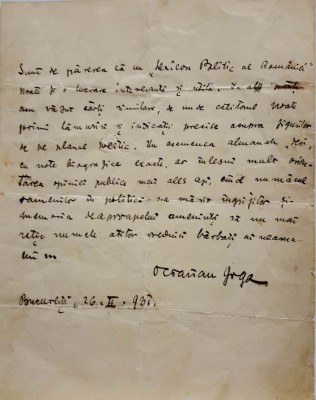 Sunt de părerea că un „Lexicon Politic al României”
poate fi o lucrare interesantă și utilă. În alte
am văzut cărți similare, de unde cetitorul poate
primi lămuriri și indicații precise asupra figurilor
de pe planul politic. Un asemenea almanah, deci,
cu note biografice exacte, ar înlesni mult orien-
tarea opiniei publice mai ales azi, când numărul
oamenilor în politică s'a mărit înspăi și
memoria deaproapelui amenință să nu mai
reție numele atâtor vrednici bărbați ai neamu-
lui
Octavian Goga
București, 26. II. 931.